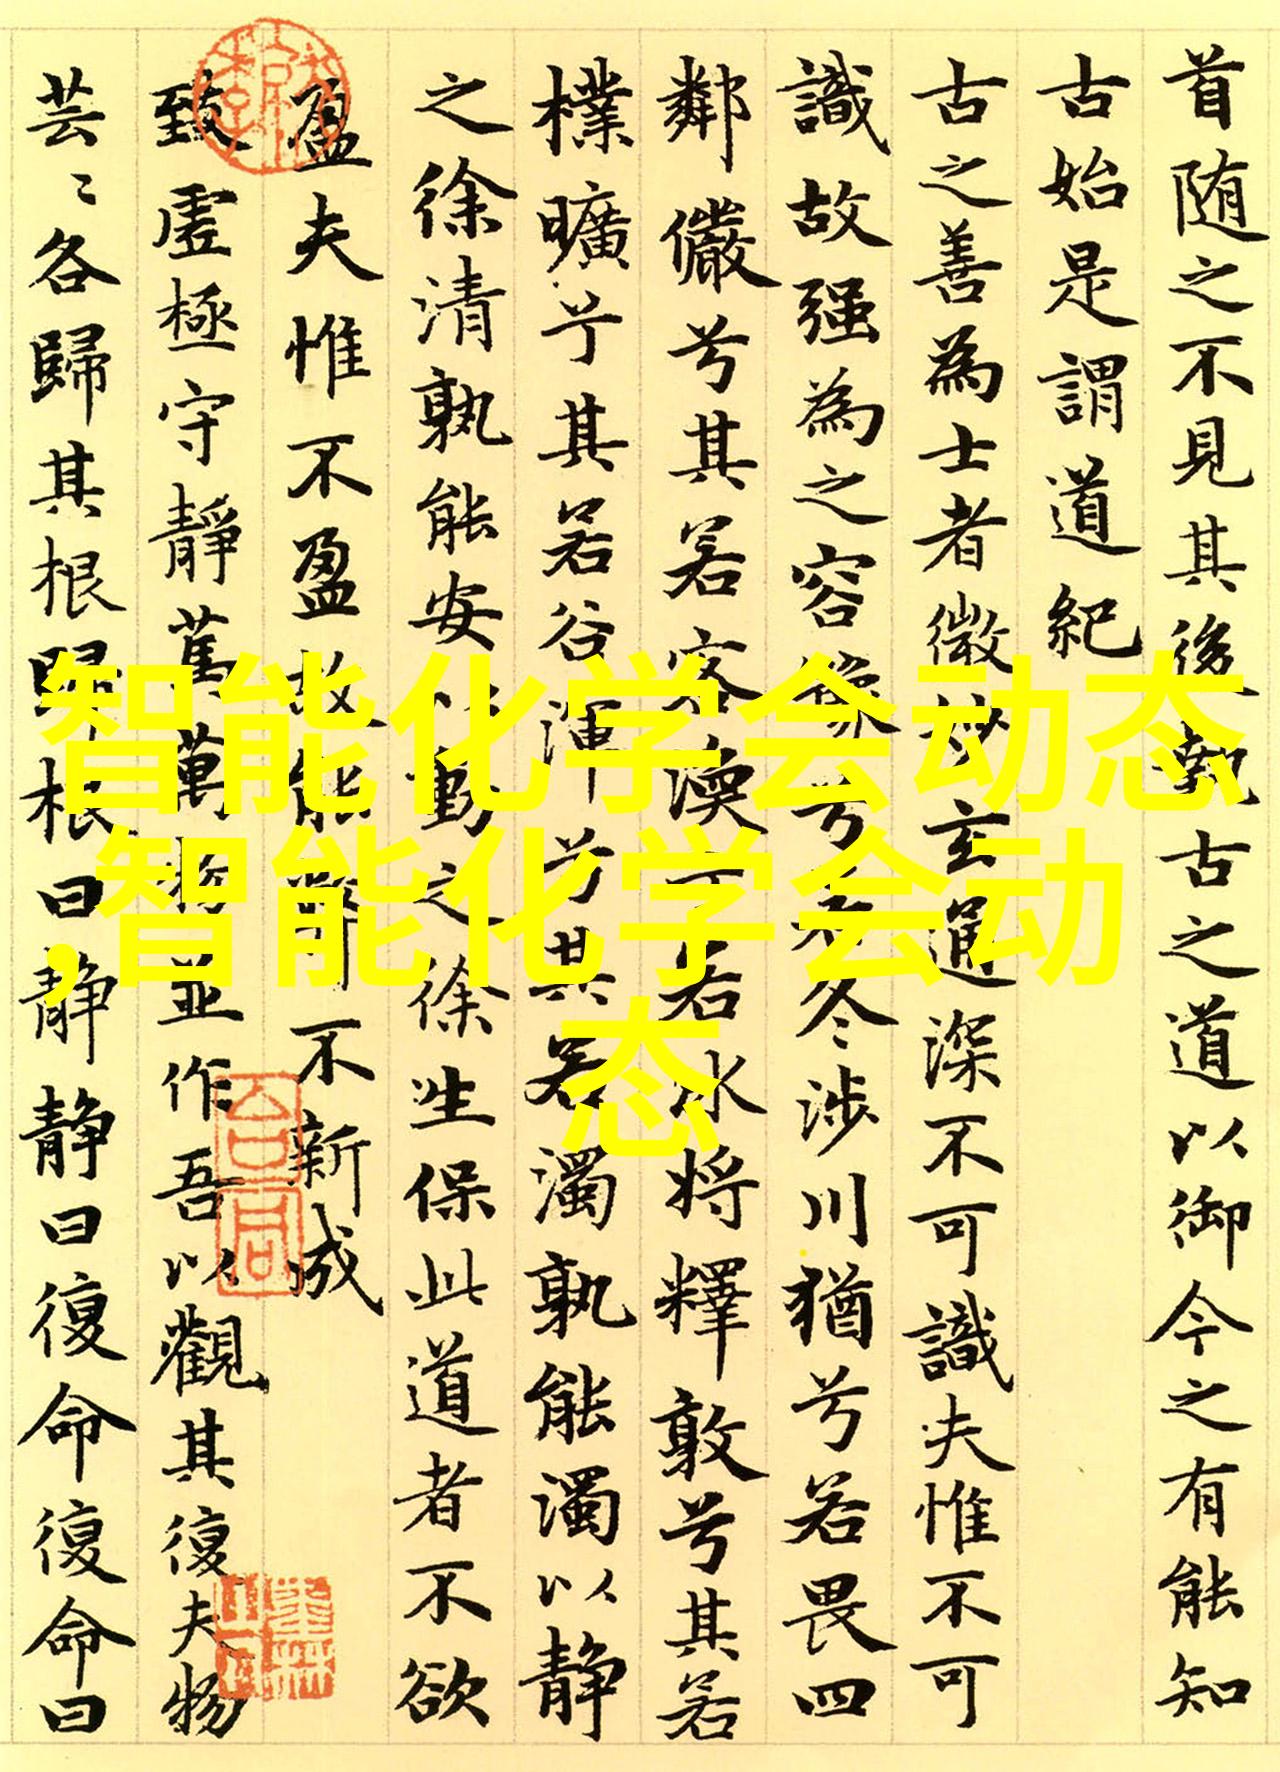 首随之不見其後執古之道以御今之有能知
古始是謂道紀
古之善為士者微妙玄通深不可識夫惟不可
識故强為之容豫兮若冬涉川猶兮若畏四
鄰儼兮其若客渙兮若冰將釋敦兮其若
樸曠兮其若谷渾兮其若濁孰能濁以静
之徐清孰能安以動之徐生保此道者不欲
盈夫惟不盈故能弊不新成
致虛極守靜篤萬物並作吾以觀其復夫物
芸〻各歸其根歸根曰静静曰復命復命曰
智能化学会动态
,智能化学会动
态